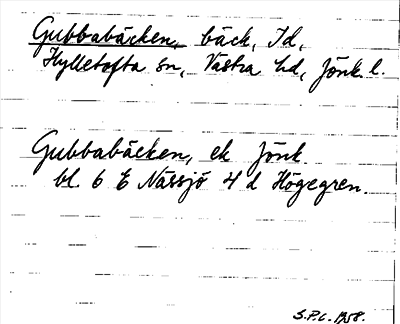 Gubbabäcken, bäck, Id,
Hylletofta sn, Västra hd, Jönk. l.
Gubbabäcken, ek Jönk.
bl. 6 E Nässjö 4 d Högegren.
S.P.C. 1958.